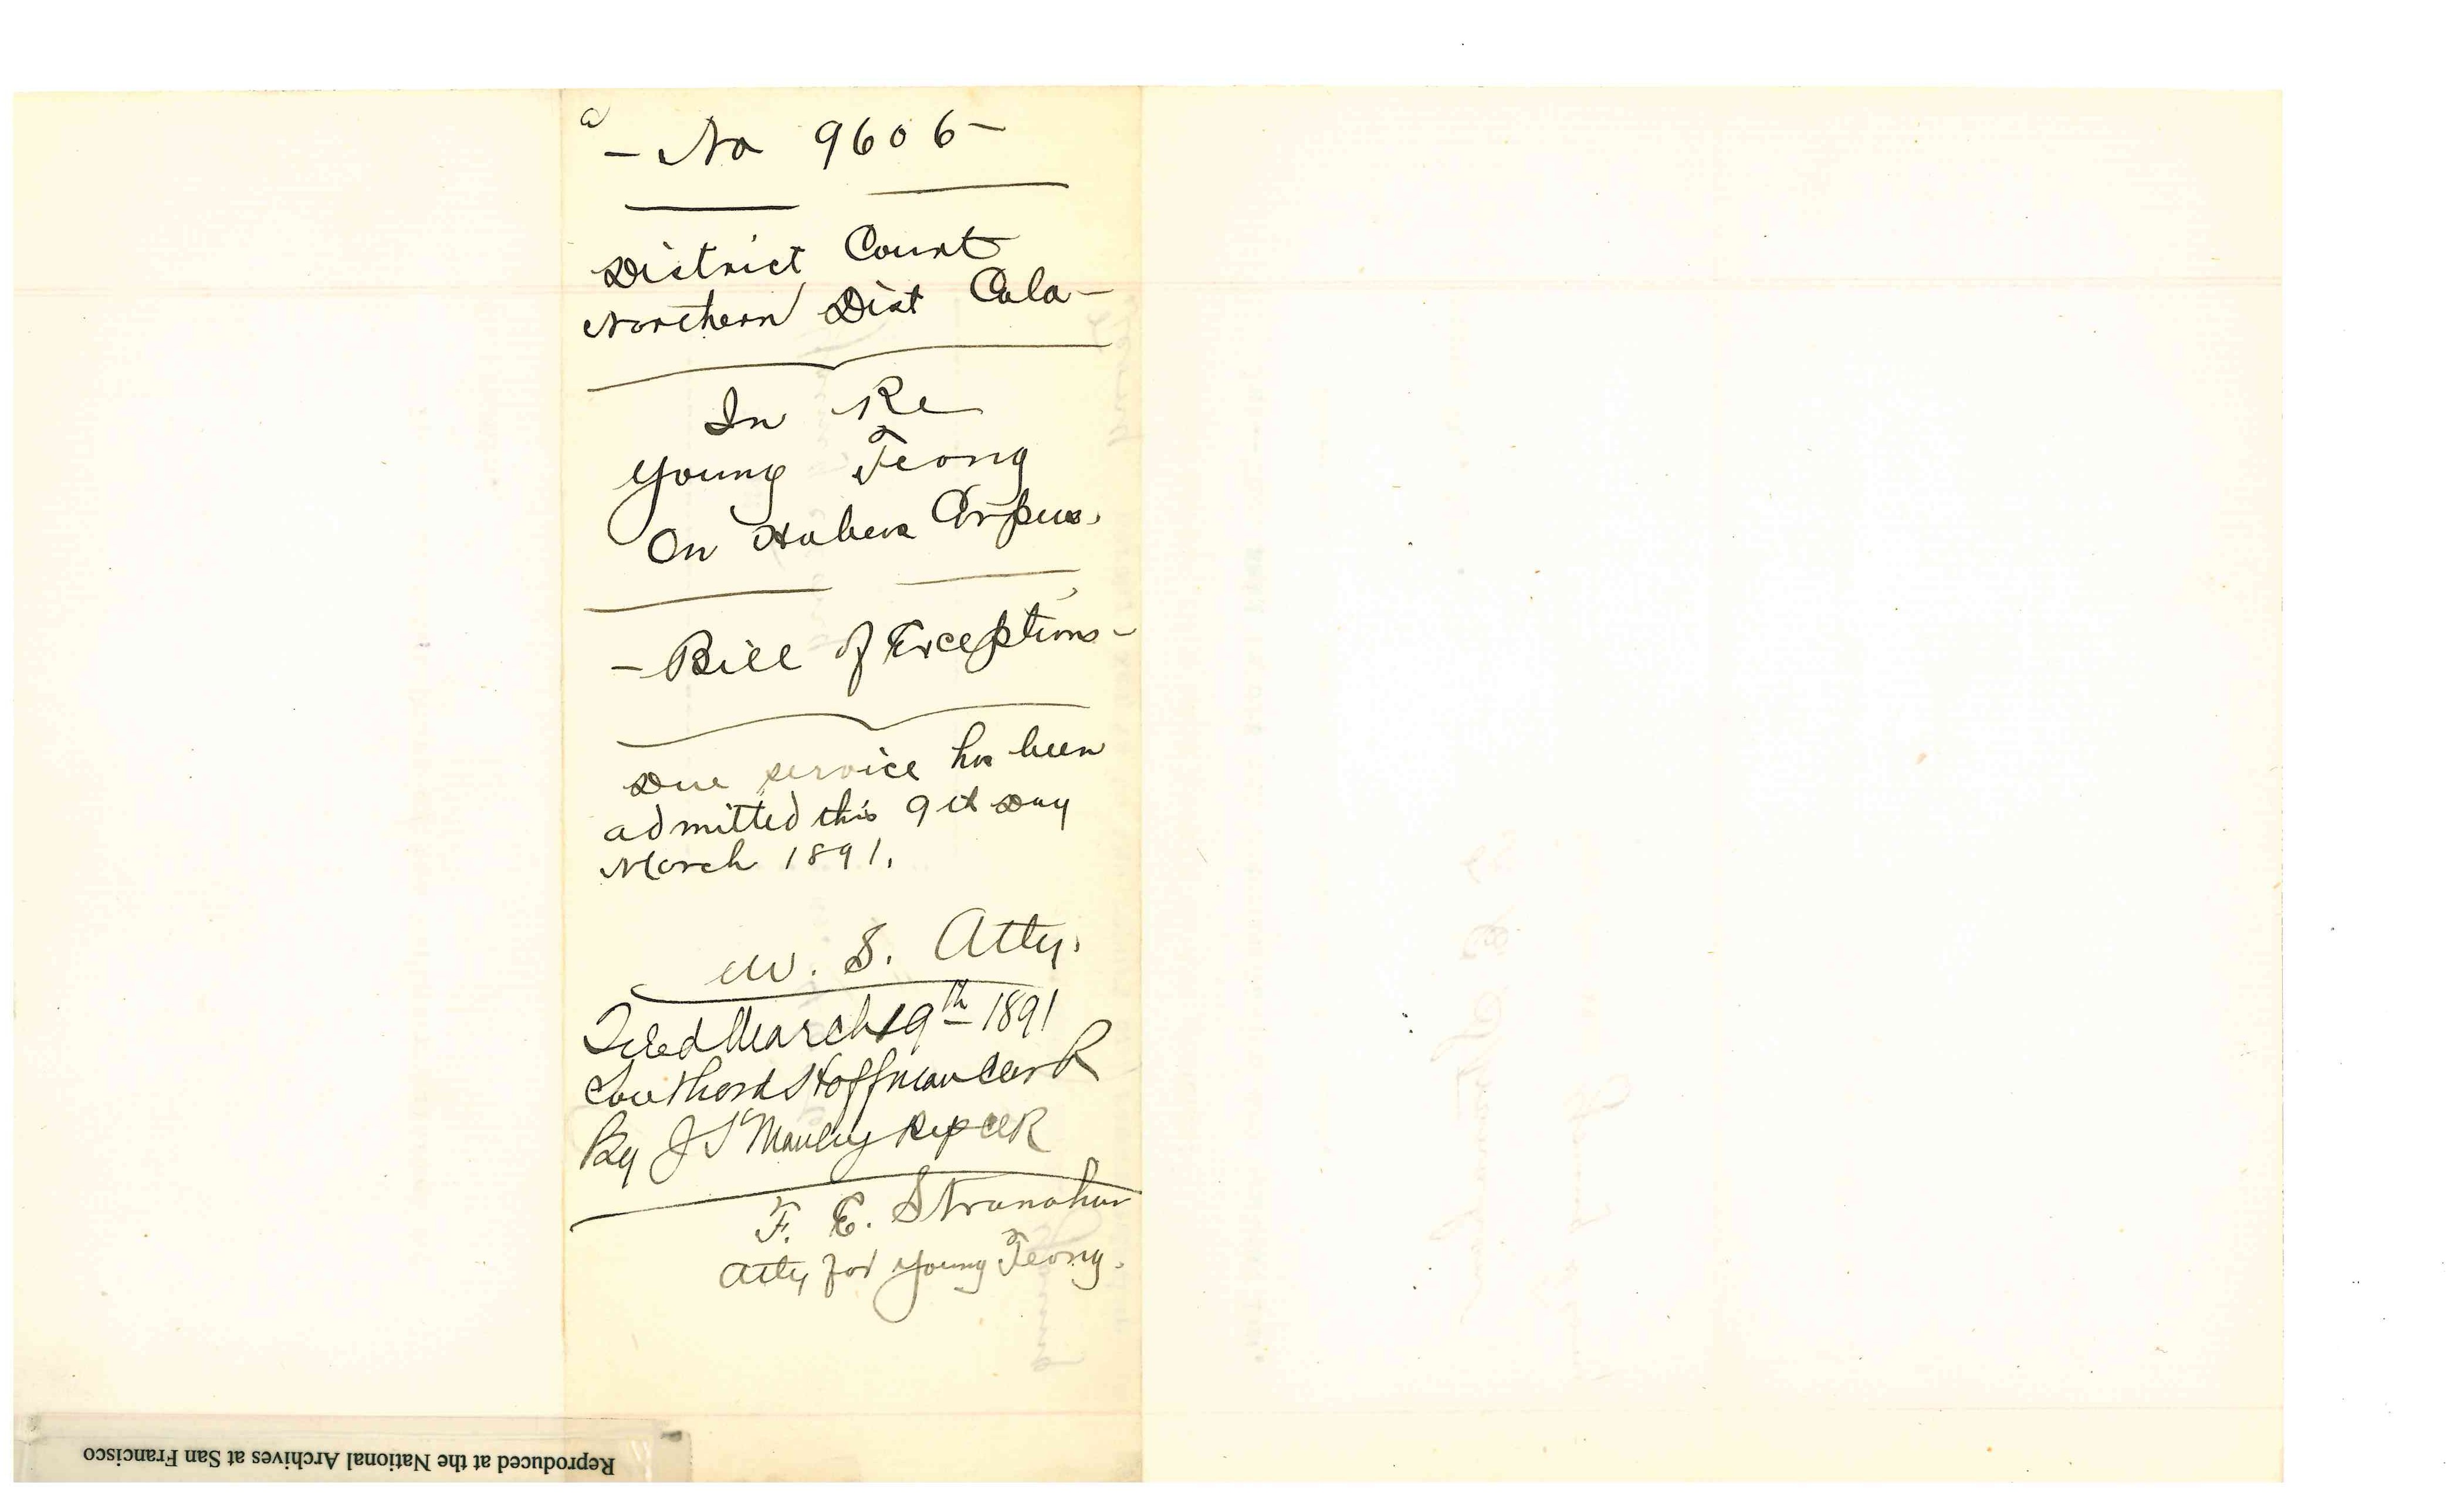 a
- No 9606 -
District Court
Northern Dist Cala -
In Re
Young Teong
On Habeas Corpus.
- Bill of Exceptions -
Due service has been
admitted this 9th Day
March 1891.
U. S. Atty.
Filed March 19th 1891
Southard Hoffman Clerk
By J S Manley Dep Clk
F. E. Stranahan
Atty for Young Teong.
Reproduced at the National Archives at San Francisco